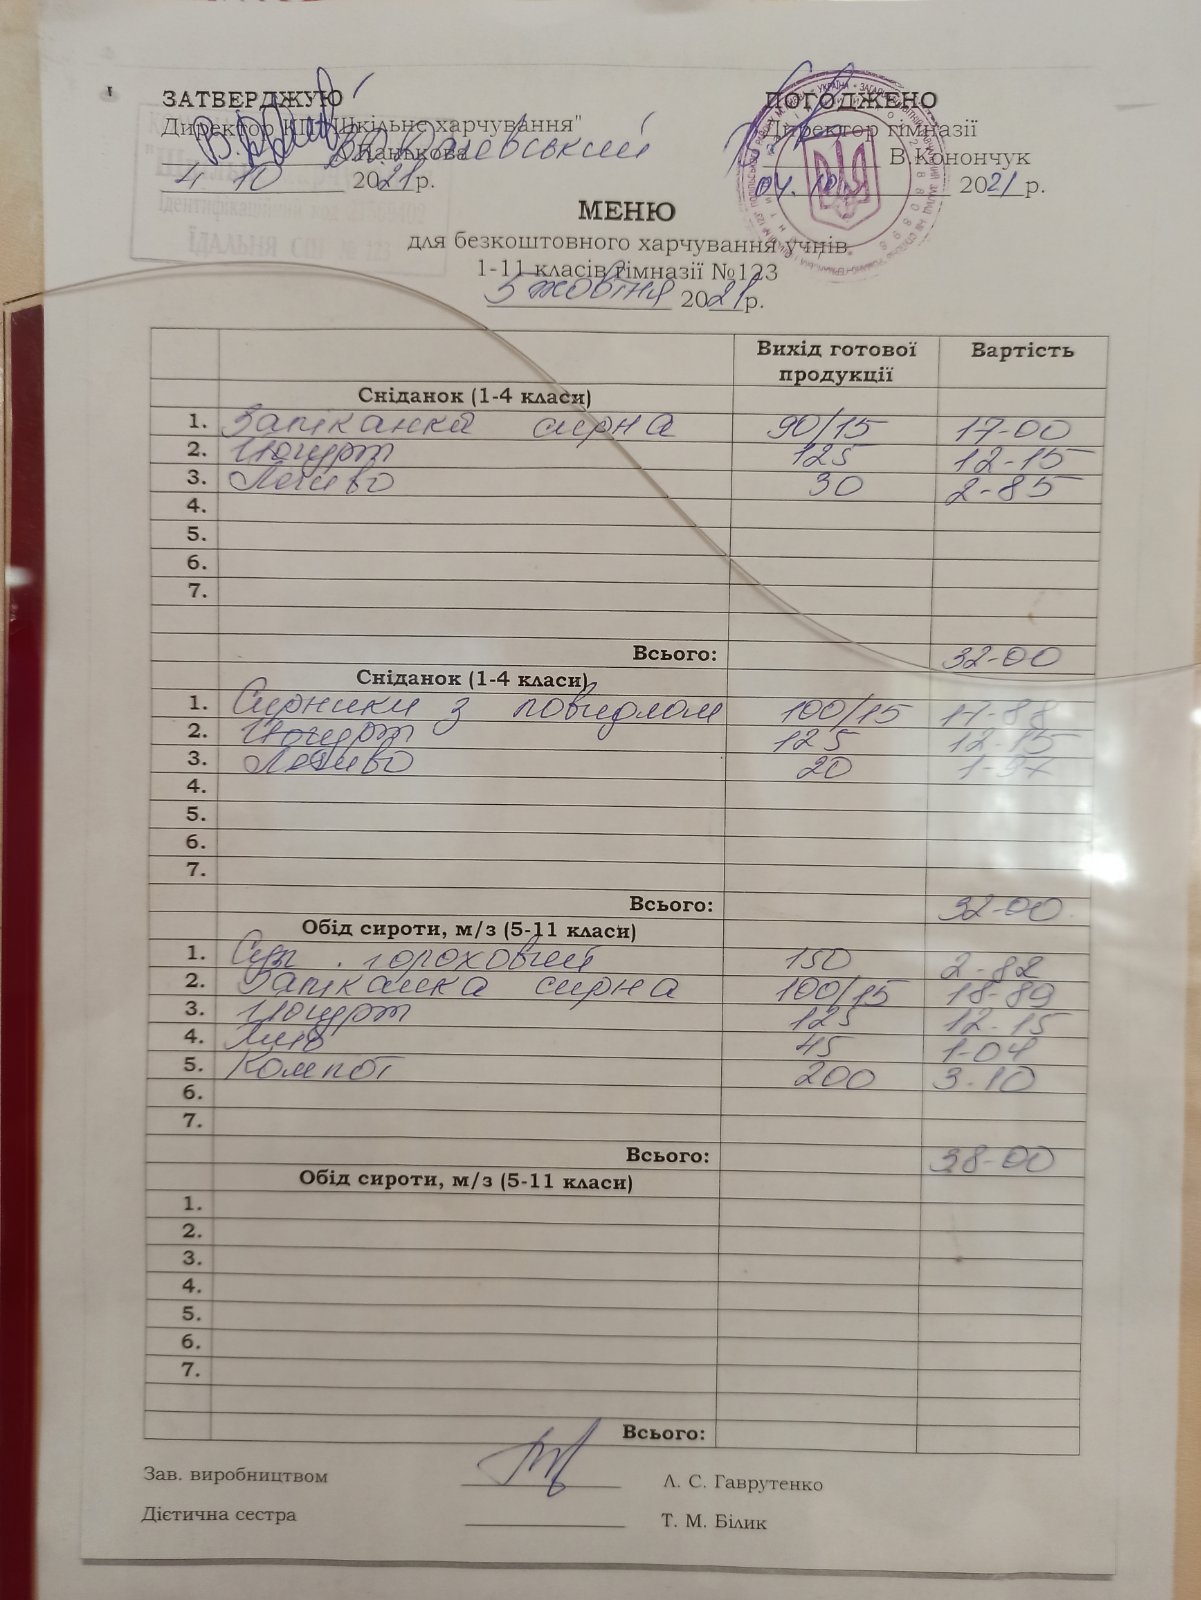 ЗАТВЕРДЖУЮ
Директор КП "Шкільне харчування"
О.Панькова
4 10 2021р.
ЇДАЛЬНЯ СШ № 123
ПОГОДЖЕНО
Директор гімназії
В.Конончук
04.10. 2021р.
МЕНЮ
для безкоштовного харчування учнів
1-11 класів гімназії №123
5 жовтня 2021р.
Вихід готової продукції Вартість
Сніданок (1-4 класи)
1. Запіканка сирна 90/15 17-00
2. Йогурт 125 12-15
3. Печиво 30 2-85
4.
5.
6.
7.
Всього: 32-00
Сніданок (1-4 класи)
1. Сирники з повидлом 100/15 17-88
2. Йогурт 125 12-15
3. Печиво 20 1-97
4.
5.
6.
7.
Всього: 32-00
Обід сироти, м/з (5-11 класи)
1. Суп гороховий 150 2-82
2. Запіканка сирна 100/15 18-89
3. Йогурт 125 12-15
4. Хліб 45 1-04
5. Компот 200 3-10
6.
7.
Всього: 38-00
Обід сироти, м/з (5-11 класи)
1.
2.
3.
4.
5.
6.
7.
Всього:
Зав. виробництвом Л. С. Гаврутенко
Дієтична сестра Т. М. Білик